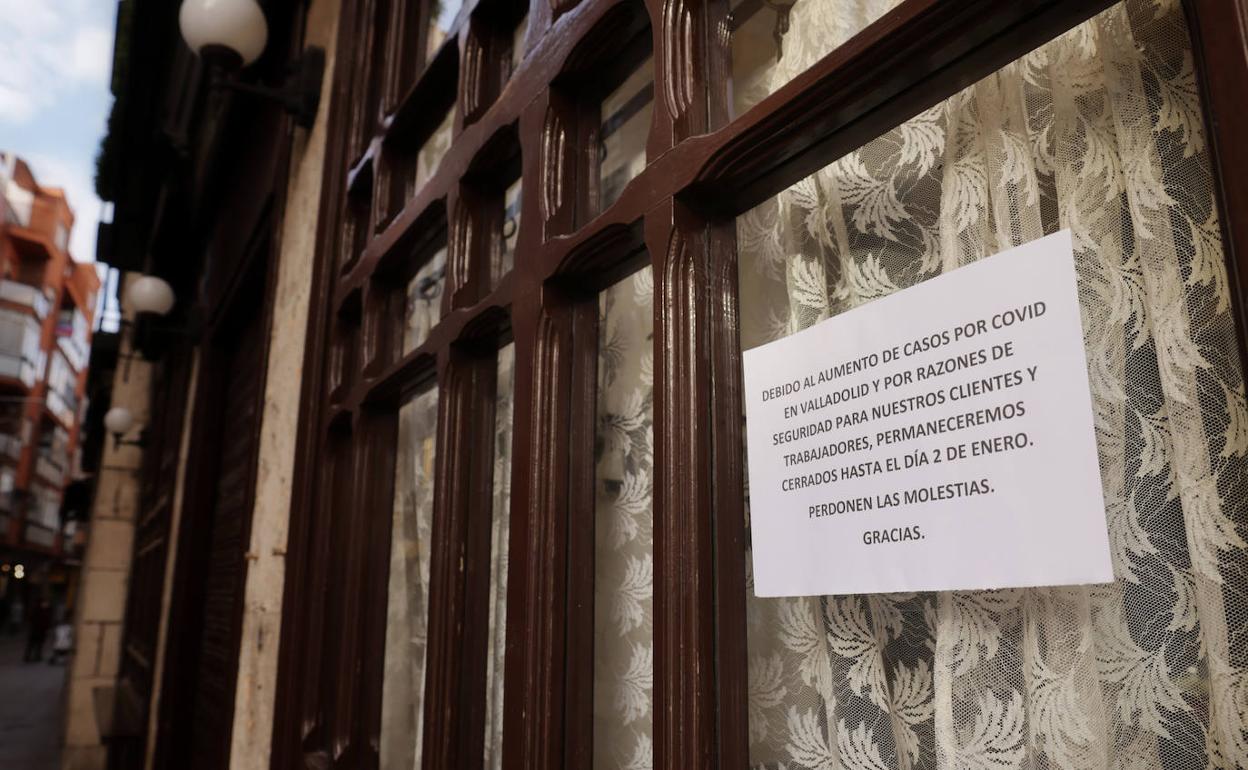 DEBIDO AL AUMENTO DE CASOS POR COVID
EN VALLADOLID Y POR RAZONES DE
SEGURIDAD PARA NUESTROS CLIENTES Y
TRABAJADORES, PERMANECEREMOS
CERRADOS HASTA EL DÍA 2 DE ENERO.
PERDONEN LAS MOLESTIAS.
GRACIAS.